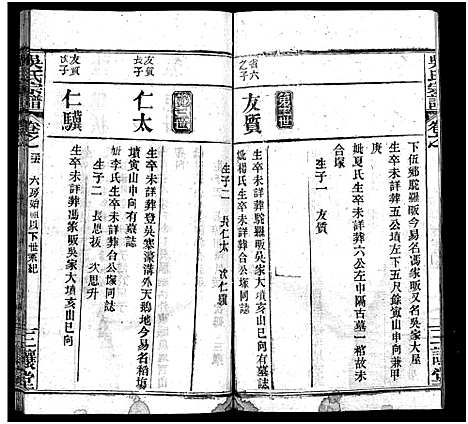 吳氏宗譜
卷之
下伍鄉駝羅畈今易名馮家畈又名吳家大屋
生卒未詳葬五公墳左下五尺餘寅山申向兼甲
庚
妣夏氏生卒未詳葬六公左中隔古墓一棺故未
合塚
生子一 友質
三讓堂
省六
之子
友質
生卒未詳葬駝羅畈吳家大墳亥山巳向有墓誌
妣楊氏生卒未詳葬合公塚同誌
生子二 長仁太 次仁驥
友質
長子
仁太
生卒未詳葬登吳寨濠溝外天鵝地今易名稻場
墳寅山申向有墓誌
妣李氏生卒未詳葬合公塚同誌
生子二 長思拔 次思升
友質
次子
仁驥
生卒未詳葬馮家畈吳家大墳亥山巳向
吳氏宗譜
卷之
六房始祖以下世系紀
三讓堂